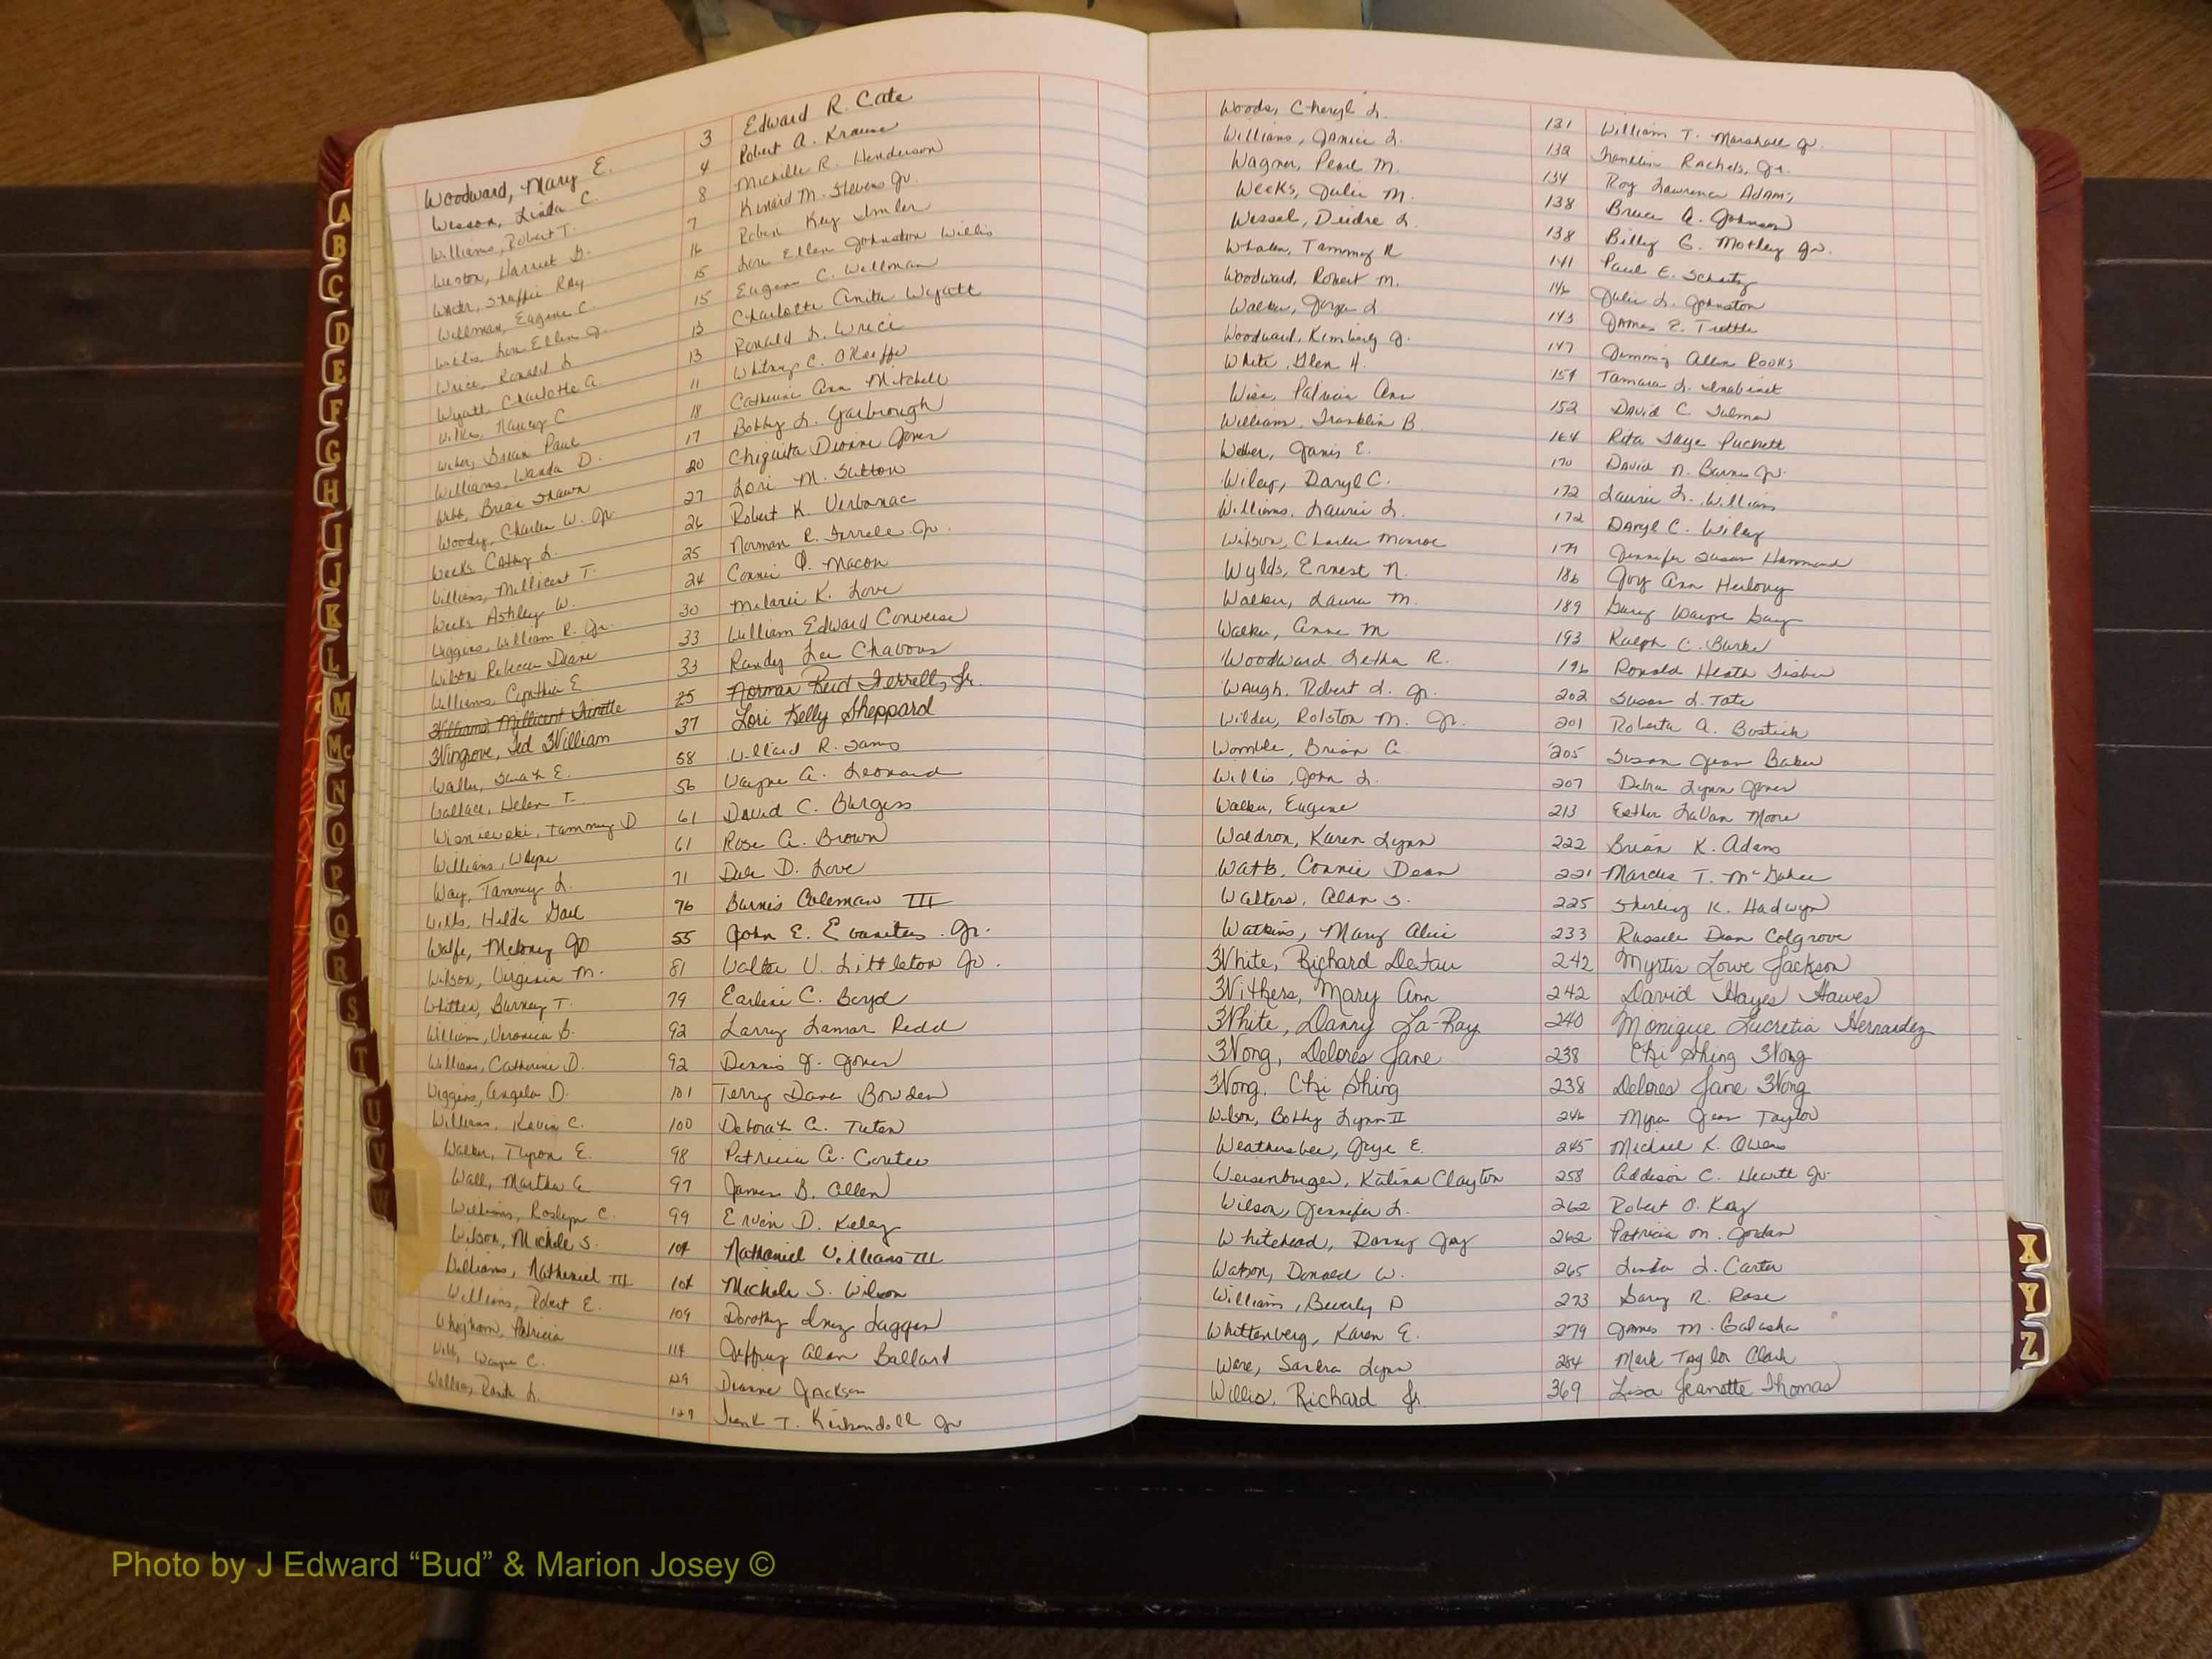 Woodward, Mary E. 3 Edward R. Cate
Wesson, Linda C. 4 Robert A. Krause
Williams, Robert T. 8 Michelle R. Henderson
Weston, Harriet B. 7 Kinard M. Stevens Jr.
Ray 16 Robin Kay Imler
Wellman, Eugene C. 15 Lou Ellen Johnston Willis
Willis, Lou Ellen J. 15 Eugene C. Wellman
Wrice, Ronald L. 13 Charlotte Anita Wyatt
Wyatt, Charlotte A. 13 Ronald L. Wrice
Wilkes, Nancy C 11 Whitney C. O'Keeffe
Weber, Brian Paul 18 Catherine Ann Mitchell
Williams, Wanda D. 17 Bobby L. Yarbrough
Webb, Brian Shawn 20 Chiquita Dionne Jones
Woody, Charles W. Jr. 27 Lori M. Sutton
Weeks Cathy L. 26 Robert K. Verbonac
Williams, Millicent T. 25 Norman R. Ferrell Jr.
Weeks Ashley W. 24 Connie P. Macon
Wiggins, William R. Jr. 30 Melanie K. Love
Wilson Rebecca Diane 33 William Edward Converse
Williams, Cynthia E 33 Randy Lee Chavous
Williams, Millicent 25 Norman Reid Ferrell, Jr.
Wingrove, Ted William 37 Lori Kelly Sheppard
Waller, Sarah E. 58 Willard R. Sams
Wallace, Helen T. 56 Wayne A. Leonard
Wisniewski, Tammy D 61 David C. Burgess
Williams, Wayne 61 Rose A. Brown
Way, Tammy L. 71 Dale D. Love
Wills, Hilda Gail 76 Burnis Coleman III
Wolfe, Meloney Jo 55 John E. Evanitus Jr.
Wilson, Virginia M. 81 Walter V. Littleton Jr.
Whitten, Burney T. 79 Earline C. Boyd
Williams, Veronica B. 92 Larry Lamar Redd
Williams, Catherine D. 92 Dennis J. Jones
Wiggins, Angela D. 101 Terry Dane Bowden
Williams, Kevin C. 100 Deborah A. Tuten
Walker, Tyron E. 98 Patricia A. Coutee
Wall, Martha A 97 James B. Allen
Williams, Roslyn C. 99 Ervin D. Keley
Wilson, Michele S. 104 Nathaniel Williams III
Williams, Nathaniel III 104 Michele S. Wilson
Williams, Robert E. 109 Dorothy Inez Laggen
Whigham, Patricia 114 Jeffrey Alan Ballard
Webb, Wayne C. 129 Dianne Jackson
L. 127 Frank T. Kirkendoll Jr
Woods, Cheryl L. 131 William T. Marshall Jr.
Williams, Janice L. 132 Franklin Rachels, Jr.
Wagner, Pearl M. 134 Roy Lawrence Adams
Weeks, Julie M. 138 Bruce A. Johnson
Wessel, Deidre L. 138 Billy G. Motley Jr.
Whalen, Tammy R 141 Paul E. Schatz
Woodward, Robert M. 146 Julie L. Johnston
Walker, Joyce L 143 James E. Tuttle
Woodward, Kimberly J. 147 Jimmy Allen Rooks
White, Glen H. 154 Tamara L. Inabinet
Wise, Patricia Ann 152 David C. Tulman
Williams, Franklin B. 164 Rita Faye Puckett
Weber, Janis E. 170 David N. Burns Jr.
Wiley, Daryl C. 172 Laurie L. Williams
Williams, Laurie L. 172 Daryl C. Wiley
Wilson, Charles Monroe 179 Jennifer Susan Hammond
Wylds, Ernest N. 186 Joy Ann Herlovy
Walker, Laura M. 189 Gary Wayne Gay
Walker, Anne M 193 Ralph C. Burke
Woodward Letha R. 196 Ronald Heath Fisher
Waugh, Robert L. Jr. 202 Susan L. Tate
Wilder, Rolston M. Jr. 201 Roberta A. Bostick
Womble, Brian A. 205 Susan Jean Baker
Willis, John L. 207 Debra Lynn Jones
Walker, Eugene 213 Esther LaVan Moore
Waldron, Karen Lynn 222 Brian K. Adams
Watts, Connie Dean 221 Marcus T. McGahee
Walters, Alan S. 225 Sherling K. Hadwyn
Watkins, Mary Alice 233 Russell Dean Colgrove
White, Richard DeFau 242 Myrtis Lowe Jackson
Withers, Mary Ann 242 David Hayes Hawes
White, Danny La-Ray 240 Monique Lucretia Hernandez
Wong, Delores Jane 238 Chi Shing Wong
Wong, Chi Shing 238 Delores Jane Wong
Wilson, Bobby Lynn II 246 Myra Jean Taylor
Weathersbee, Jaye E. 245 Michael K. Owens
Weisenburger, Katina Clayton 258 Addison C. Hewitt Jr.
Wilson, Jennifer L. 262 Robert O. Kay
Whitehead, Danny Jay 262 Patricia M. Jordan
Watson, Donald W. 265 Linda L. Carter
Williams, Beverly D 273 Gary R. Rose
Whittenberg, Karen E. 279 James M. Galasha
Ware, Sandra Lynn 284 Mark Taylor Clark
Willis, Richard Jr. 369 Lisa Jeanette Thomas
A
B
C
D
E
F
G
H
I
J
K
L
M
Mc
N
O
P
Q
R
S
T
U
V
W
X
Y
Z
Photo by J Edward “Bud” & Marion Josey ©